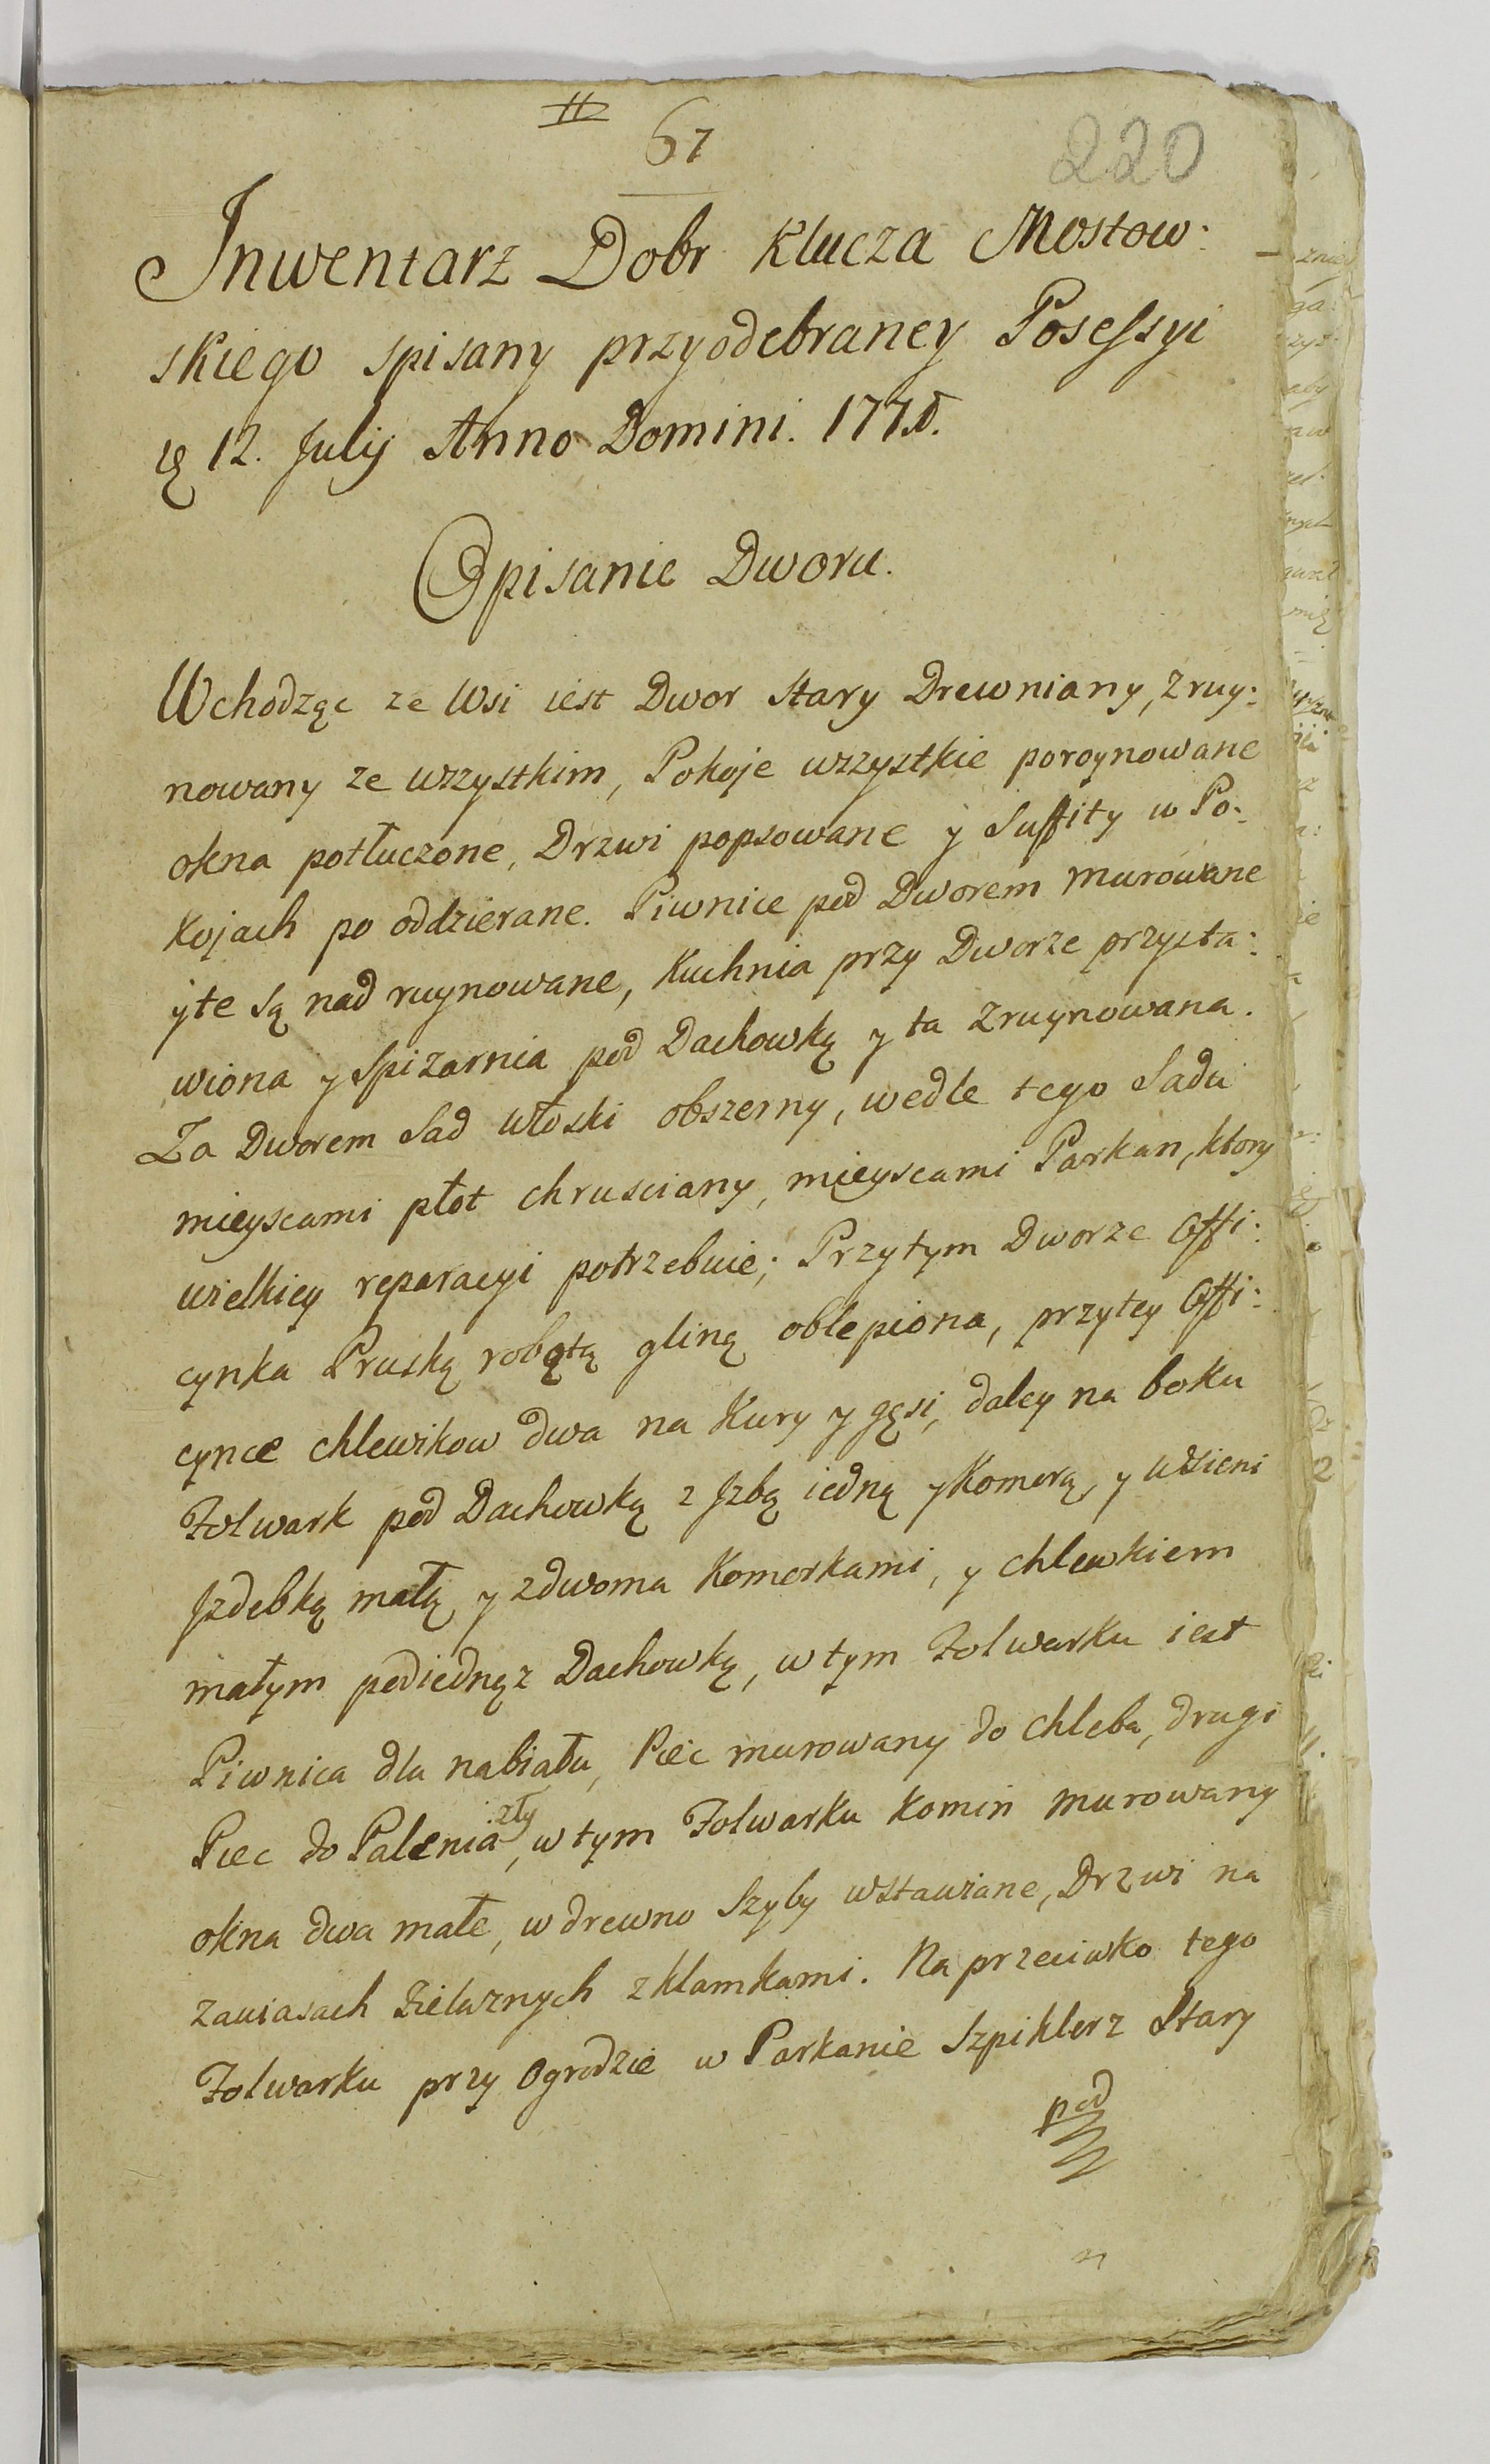 #
67
220
Jnwentarz Dobr Klucza Mostow:
skiego spisany przyodebraney Posessyi
12. Julij Anno Domini.
Opisanie Dworu.
Wchodząc ze Wsi iest Dwor Stary Drewniany, zruy:
nowany ze wszystkim, Pokoje wszystkie poroynowane
okna potłuczone, Drzwi popsowane y Suffity w Po:
Kojach po oddzierane. Piwnice pod Dworem Murowane
yte są nad ruynowane, Kuchnia przy Dworze przysta:
wiona y Spizarnia pod Dachowką y ta Zruynowana.
Za Dworem Sad włoski obszerny, wedle tego Sadu
mieyscami płot chrusciany, mieyscami Parkan, ktory
wielkiey reparacyi potrzebuie; Przytym Dworze Offi:
cynka Pruską robotą gliną oblepiona, przytey Offi:
cynce chlewikow dwa na Kury y gęsi, daley na boku
Folwark pod Dachowką z Jzbą iedną y Komorą, y wsieni
Jzdebką małą y zdwoma Komorkami, y chlewkiem
małym podiednąz Dachowką, w tym Folwarku iest
Piwnica dla nabiału, Piec murowany do chleba, drugi
Piec do Palenia zły, w tym Folwarku Komin murowany
okna dwa małe, w drewno Szyby wstawiane, Drzwi na
zawiasach żielaznych z klamkami. Na przeciwko tego
Folwarku przy Ogrodzie w Parkanie Szpiklerz Stary
pod